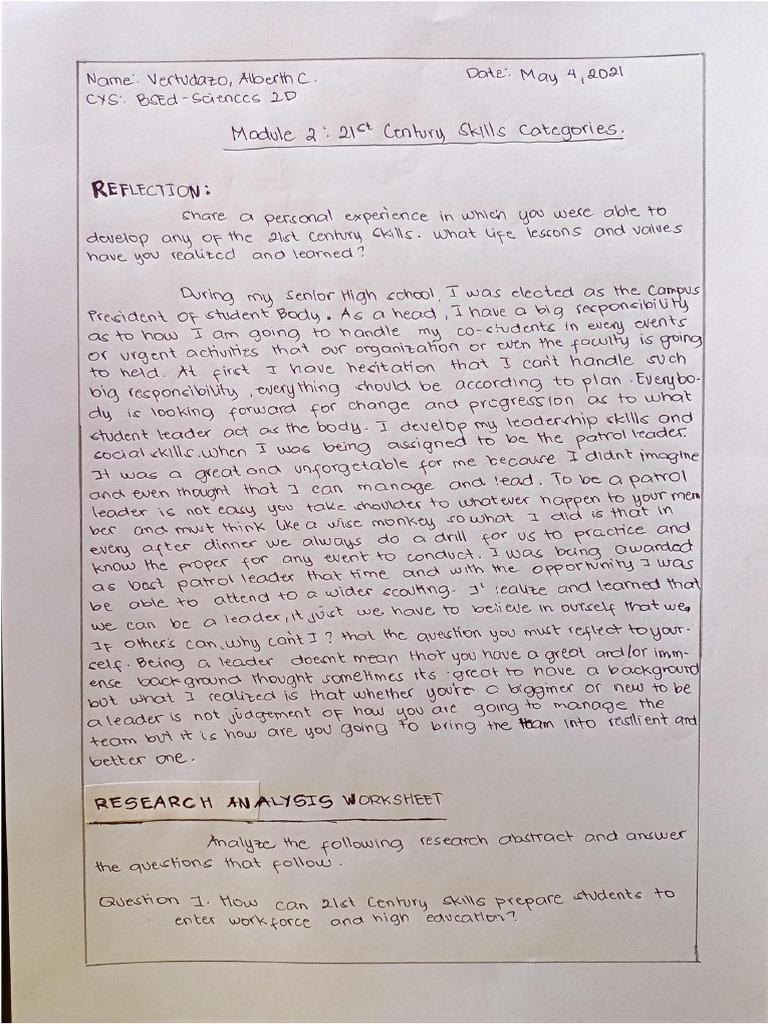 Name: Vertudazo, Alberth C.
Date: May 4, 2021
CYS: BSEd-Sciences 2D
Module 2: 21st Century Skills Categories.
REFLECTION:
Share a personal experience in which you were able to
develop any of the 21st Century Skills. What life lessons and values
have you realized and learned?
During my Senior High School, I was elected as the Campus
President of Student Body. As a head, I have a big responsibility
as to how I am going to handle my co-students in every events
or urgent activities that our organization or even the faculty is going
to held. At first I have hesitation that I can't handle such
big responsibility, everything should be according to plan. Everybo-
dy is looking forward for change and progression as to what
student leader act as the body. I develop my leadership skills and
social skills.when I was being assigned to be the patrol leader.
It was a great and unforgetable for me because I didnt imagine
and even thought that I can manage and lead. To be a patrol
leader is not easy you take shoulder to whatever happen to your mem
ber and must think like a wise monkey so what I did is that in
every after dinner we always do a drill for us to practice and
know the proper for any event to conduct. I was being awarded
as best patrol leader that time and with the opportunity I was
be able to attend to a wider scouting. I realize and learned that
we can be a leader, it just we have to believe in ourself that we,
If other's can, why can't I? that the question you must reflect to your-
self. Being a leader doesnt mean that you have a great and/or imm-
ense background thought sometimes its great to have a background
but what I realized is that whether you're a bigginer or new to be
a leader is not judgement of how you are going to manage the
team but it is how are you going to bring the team into resilient and
better one.
RESEARCH ANALYSIS WORKSHEET
Analyze the following research abstract and answer
the questions that follow.
Question 1. How can 21st Century skills prepare students to
enter workforce and high education?